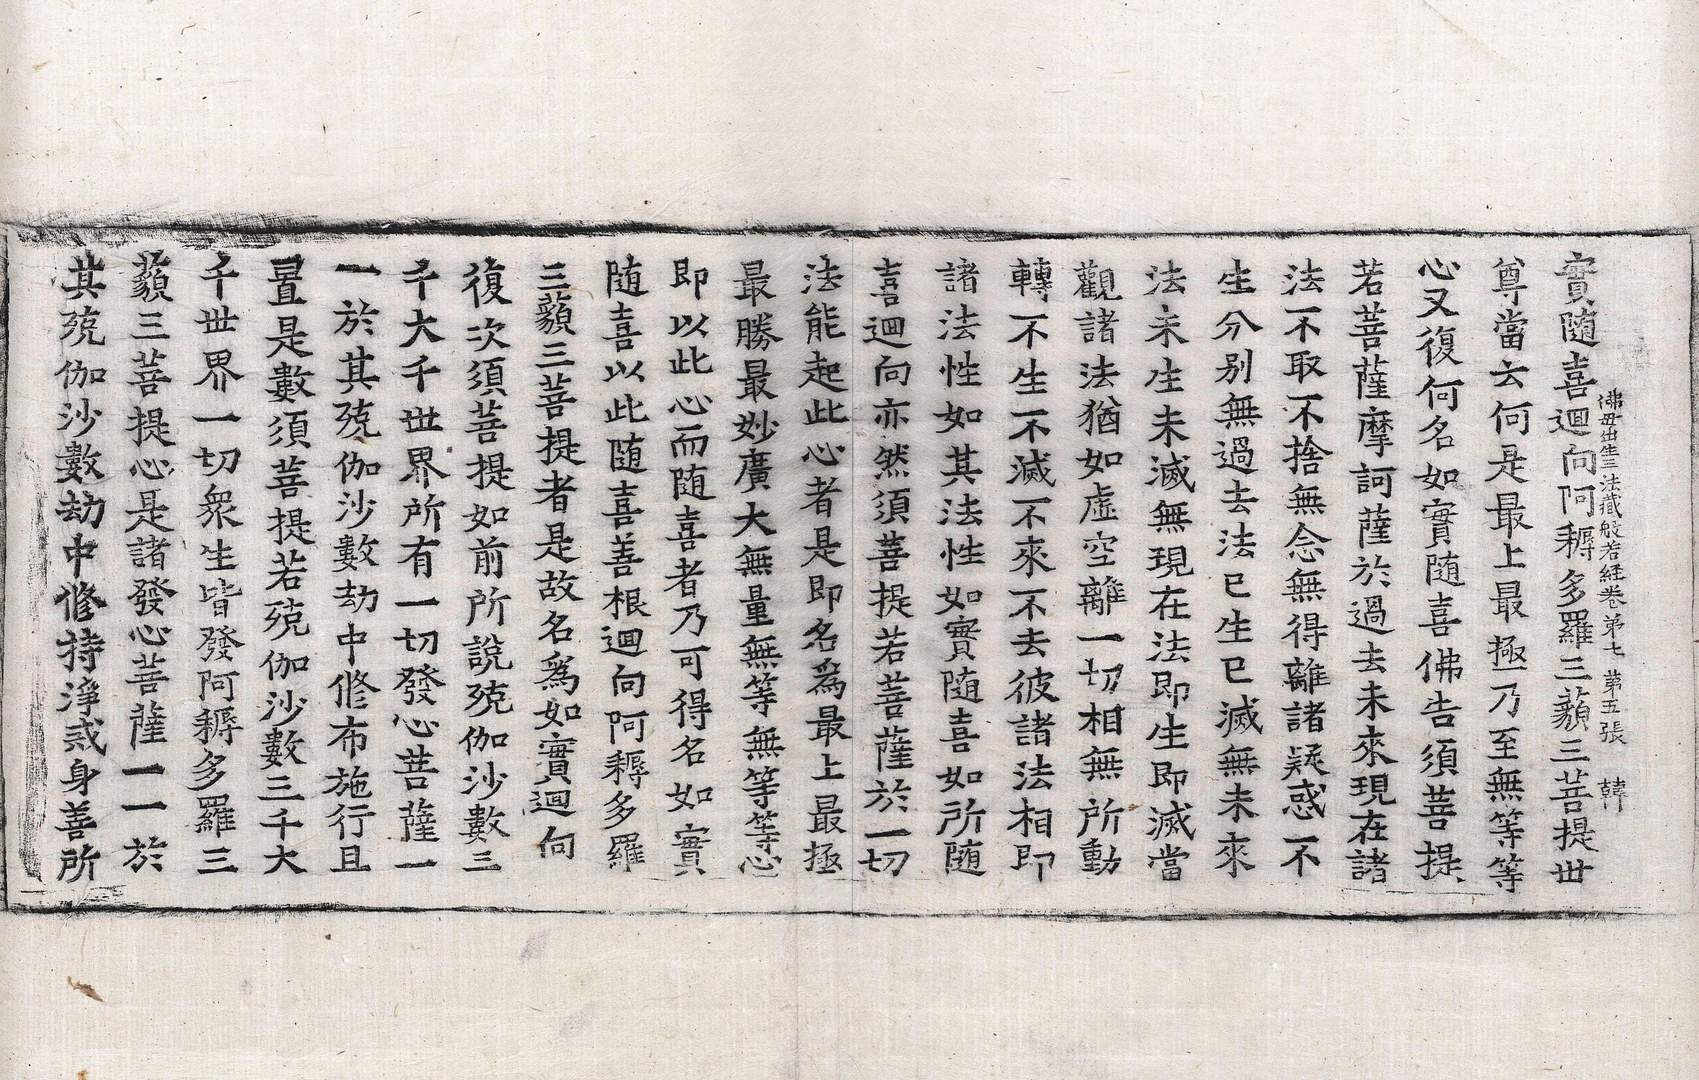 佛母出生三法藏般若經卷第七 第五張 韓
實随喜迴向阿耨多羅三藐三菩提世
尊當云何是最上最極乃至無等等
心又復何名如實随喜佛告須菩提
若菩薩摩訶薩於過去未來現在諸
法不取不捨無念無得離諸疑惑不
生分別無過去法已生已滅無未來
法未生未滅無現在法即生即滅當
觀諸法猶如虛空離一切相無所動
轉不生不滅不來不去彼諸法相即
諸法性如其法性如實随喜如所随
喜迴向亦然須菩提若菩薩於一切
法能起此心者是即名爲最上最極
最勝最妙廣大無量無等無等等心
即以此心而随喜者乃可得名如實
随喜以此随喜善根迴向阿耨多羅
三藐三菩提者是故名爲如實迴向
復次須菩提如前所說殑伽沙數三
千大千世界所有一切發心菩薩一
一於其殑伽沙數劫中修布施行且
置是數須菩提若殑伽沙數三千大
千世界一切衆生皆發阿耨多羅三
藐三菩提心是諸發心菩薩一一於
其殑伽沙數劫中修持淨戒身善所